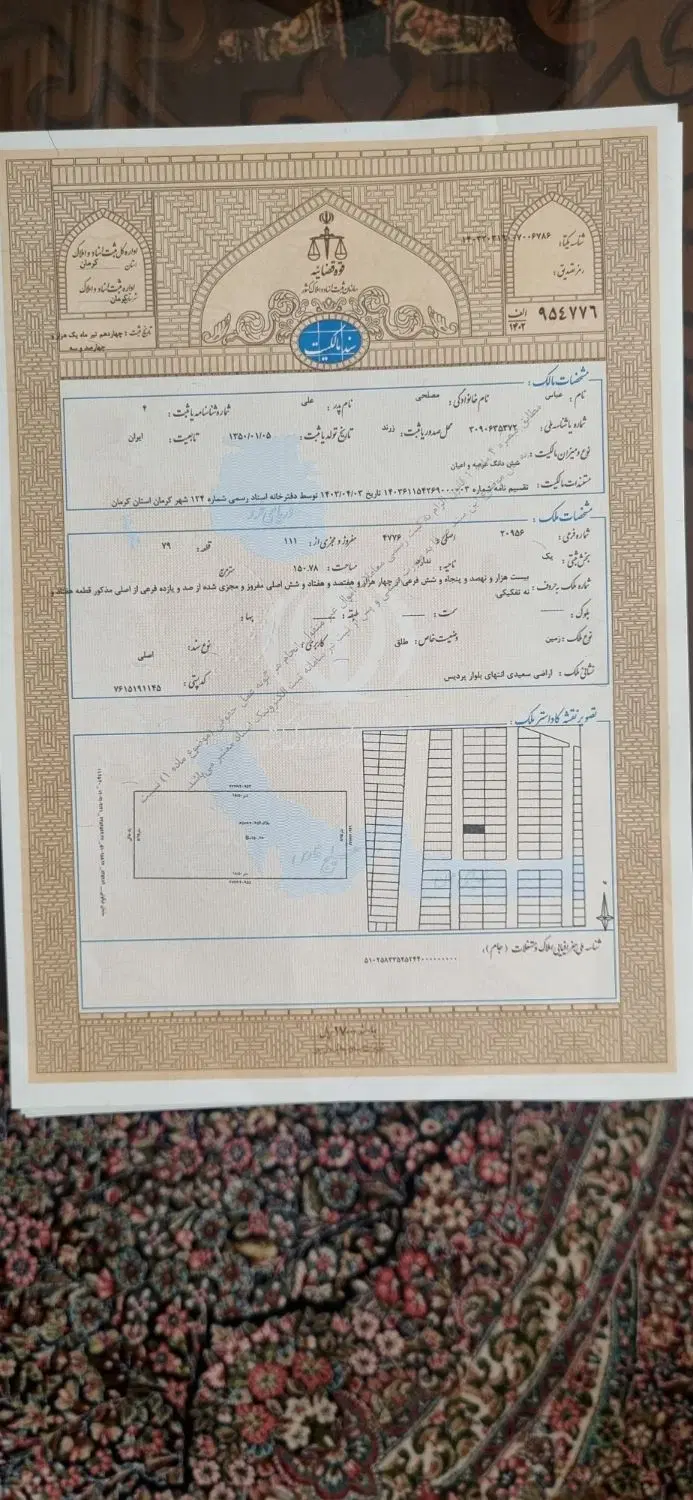 قوه قضائیه
سازمان ثبت اسناد و املاک کشور
سند مالکیت
اداره کل ثبت اسناد و املاک
استان کرمان
اداره ثبت اسناد و املاک
شهرستان کرمان
تاریخ ثبت : چهاردهم تیر ماه یک هزار و
چهارصد و سه
شناسه یکتا :
رمز تصدیق :
۹۵٤۷۷٦ الف ۱۴۰۲
مشخصات مالک :
نام : عباس نام خانوادگی : مصلحی نام پدر : علی شماره شناسنامه یا ثبت : ۴
شماره یا شناسه ملی : ۳۰۹۰۶۳۵۳۷۲ محل صدور یا ثبت : زرند تاریخ تولد یا ثبت : ۱۳۵۰/۰۱/۰۵ تابعیت : ایران
نوع و میزان مالکیت : شش دانگ عرصه و اعیان
مستندات مالکیت : تقسیم نامه شماره ۱۴۰۳۶۱۱۵۴۲۶۹۰۰۰۰۰۳ تاریخ ۱۴۰۳/۰۴/۰۳ توسط دفترخانه اسناد رسمی شماره ۱۲۴ شهر کرمان استان کرمان
مشخصات ملک :
شماره فرعی : ۲۰۹۵۶ اصلی : ۴۷۷۶ مفروز و مجزی از : ۱۱۱ قطعه : ۷۹
بخش ثبتی : یک ناحیه : ندارد مساحت : ۱۵۰.۷۸ مترمربع
شماره ملک به حروف : بیست هزار و نهصد و پنجاه و شش فرعی از چهار هزار و هفتصد و هفتاد و شش اصلی مفروز و مجزی شده از صد و یازده فرعی از اصلی مذکور قطعه هفتاد و
نه تفکیکی.
بلوک : سمت : طبقه : بها :
نوع ملک : زمین وضعیت خاص : طلق کاربری : نوع سند : اصلی
نشانی ملک : اراضی سعیدی انتهای بلوار پردیس کد پستی : ۷۶۱۵۱۹۱۱۴۵
تصویر نقشه کاداستر ملک :
شناسه ملی جغرافیایی املاک و مستغلات (جام) :